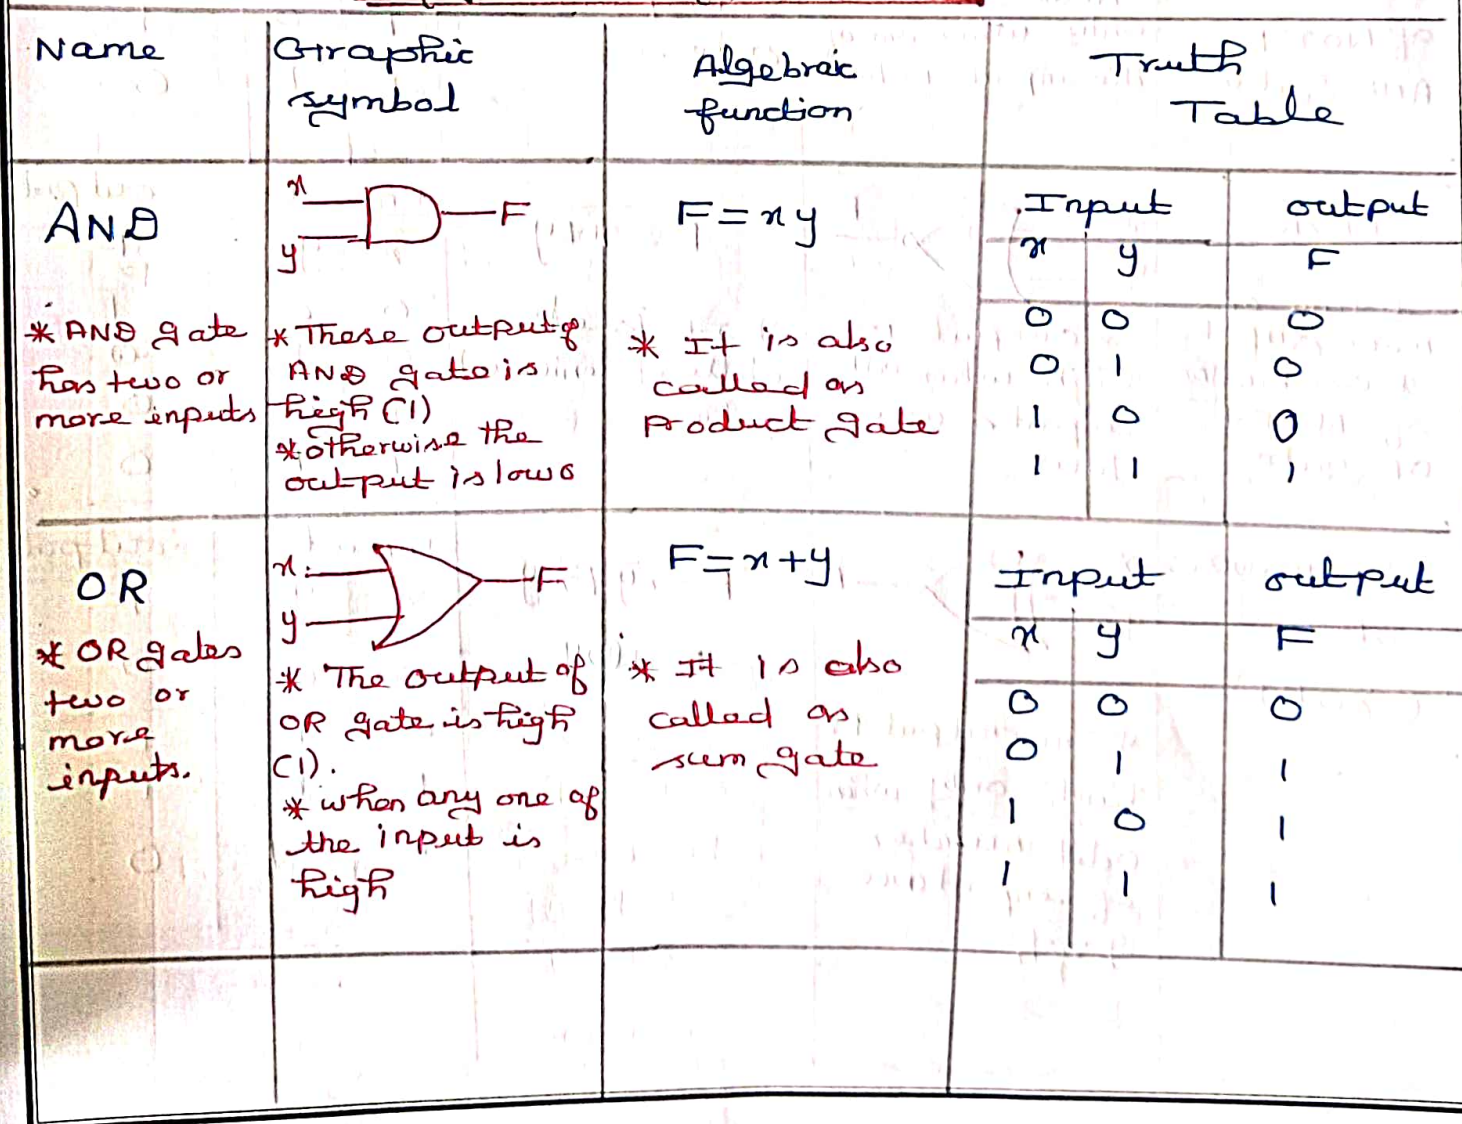 Name
Graphic
symbol
Algebraic
function
Truth
Table
AND
* AND gate
has two or
more inputs
x
y
F
* These output of
AND gate is
high (1)
* otherwise the
output is low 0
F = xy
* It is also
called as
Product gate
Input output
x y F
0 0 0
0 1 0
1 0 0
1 1 1
OR
* OR gates
two or
more
inputs.
x
y
F
* The output of
OR gate is high
(1).
* when any one of
the input is
high
F = x+y
* It is also
called as
sum gate
Input output
x y F
0 0 0
0 1 1
1 0 1
1 1 1